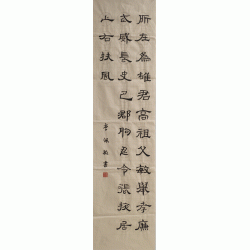 所在為雄君高祖父敏舉孝廉
武威長史巴郡朐忍令張掖居
止右扶風
書